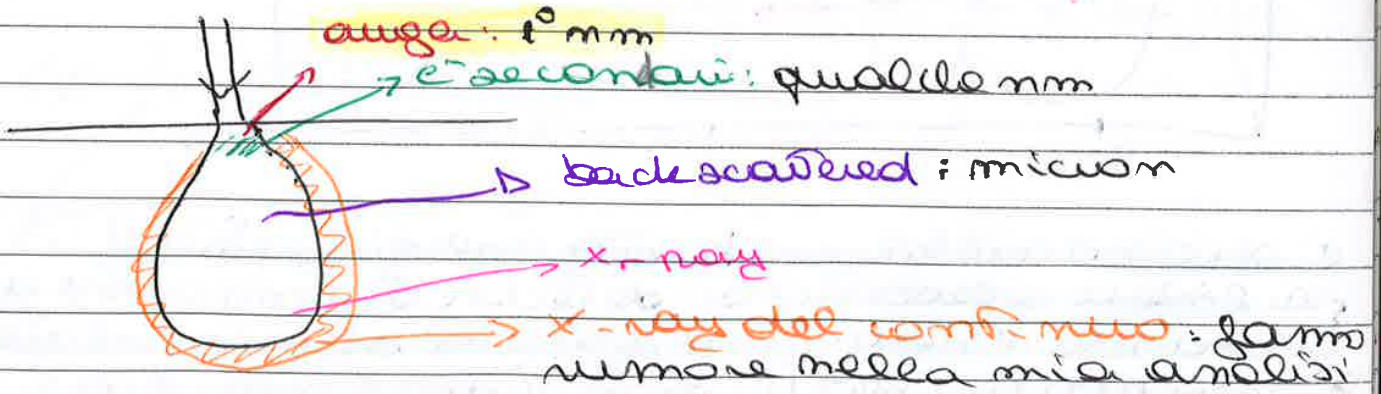 auger: 1° nm
e- secondari: qualche nm
backscattered: micron
x-ray
x-ray del continuo: fanno
rumore nella mia analisi